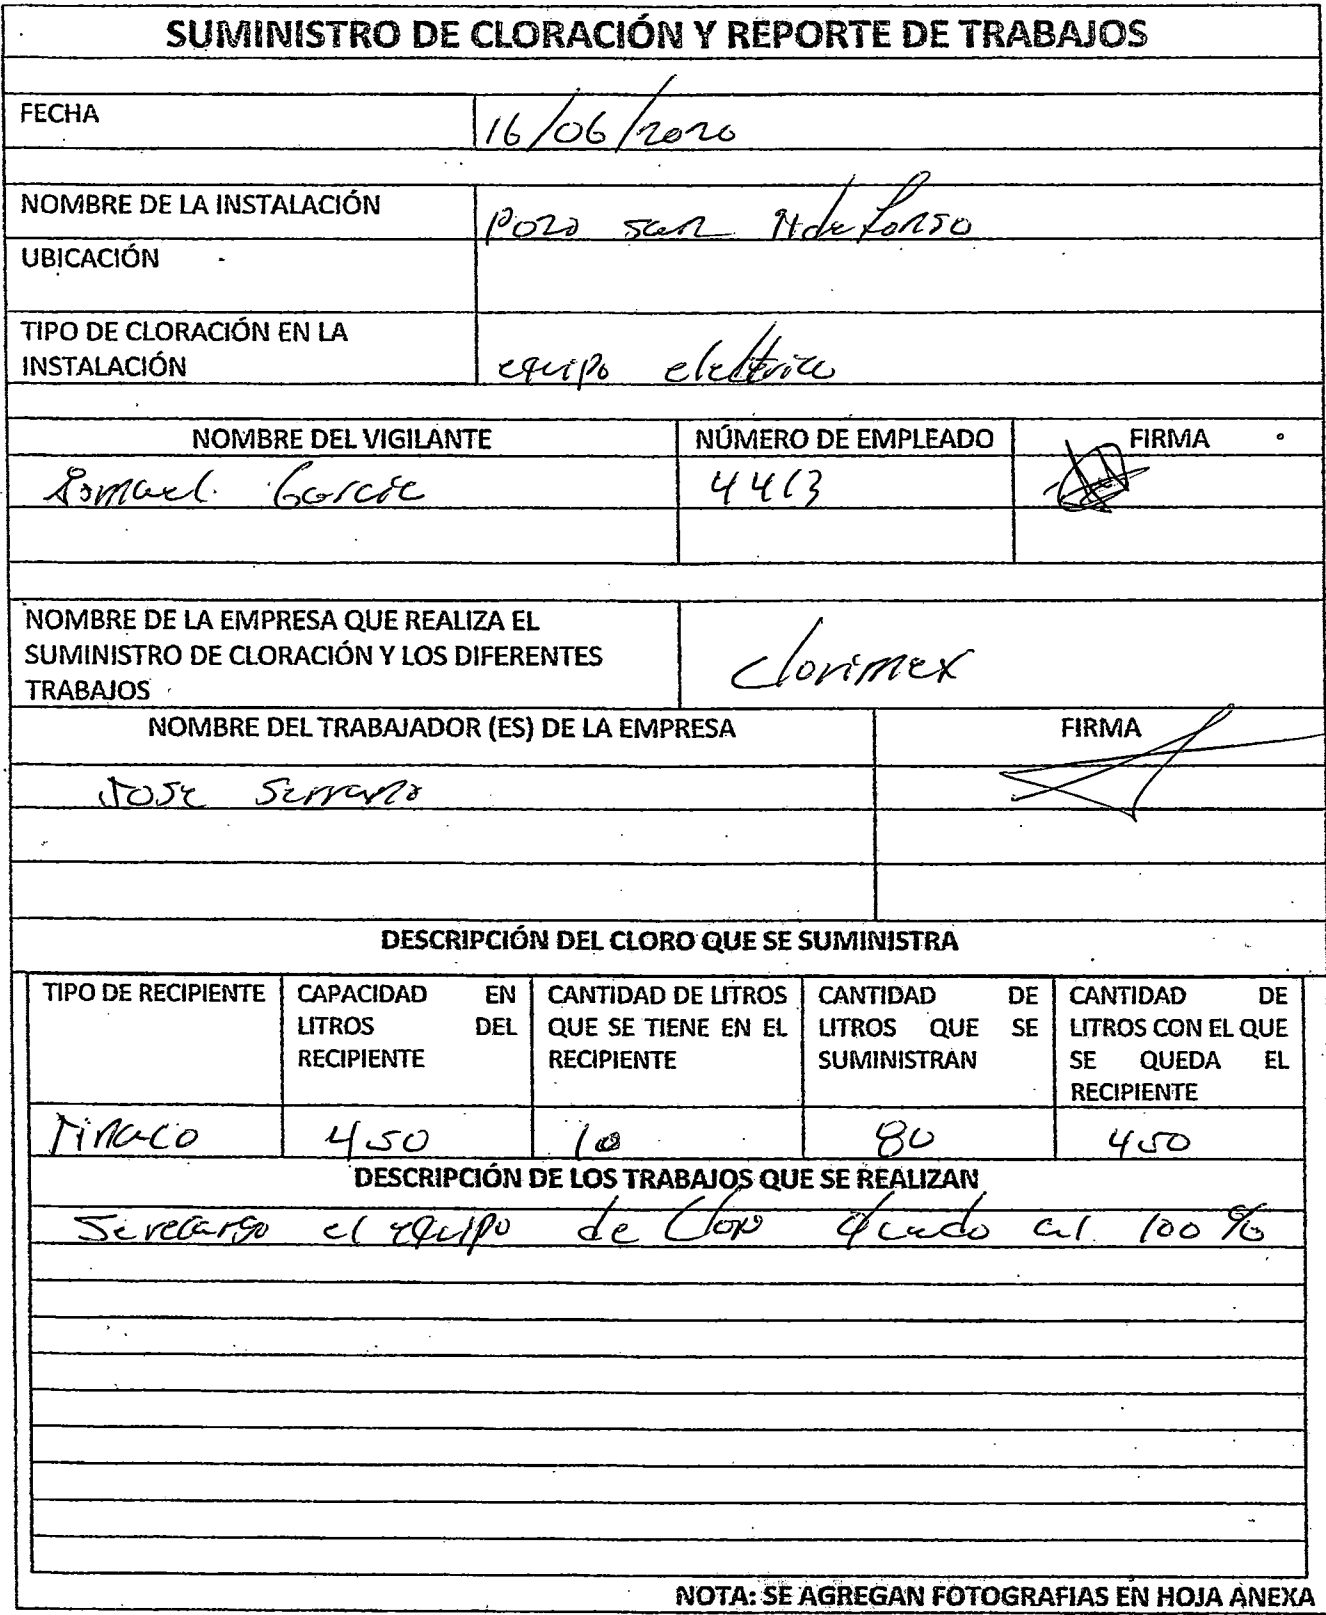 SUMINISTRO DE CLORACIÓN Y REPORTE DE TRABAJOS
FECHA 16/06/2020
NOMBRE DE LA INSTALACIÓN Pozo san Ildefonso
UBICACIÓN
TIPO DE CLORACIÓN EN LA
INSTALACIÓN equipo elettrico
NOMBRE DEL VIGILANTE NÚMERO DE EMPLEADO FIRMA
Ismael Garcia 4413
NOMBRE DE LA EMPRESA QUE REALIZA EL
SUMINISTRO DE CLORACIÓN Y LOS DIFERENTES
TRABAJOS
clorimex
NOMBRE DEL TRABAJADOR (ES) DE LA EMPRESA FIRMA
Jose Serrano
DESCRIPCIÓN DEL CLORO QUE SE SUMINISTRA
TIPO DE RECIPIENTE
CAPACIDAD EN
LITROS DEL
RECIPIENTE
CANTIDAD DE LITROS
QUE SE TIENE EN EL
RECIPIENTE
CANTIDAD DE
LITROS QUE SE
SUMINISTRAN
CANTIDAD DE
LITROS CON EL QUE
SE QUEDA EL
RECIPIENTE
Tinaco 450 10 80 450
DESCRIPCIÓN DE LOS TRABAJOS QUE SE REALIZAN
Se recargo el equipo de Cloro quedo al 100%
NOTA: SE AGREGAN FOTOGRAFIAS EN HOJA ANEXA